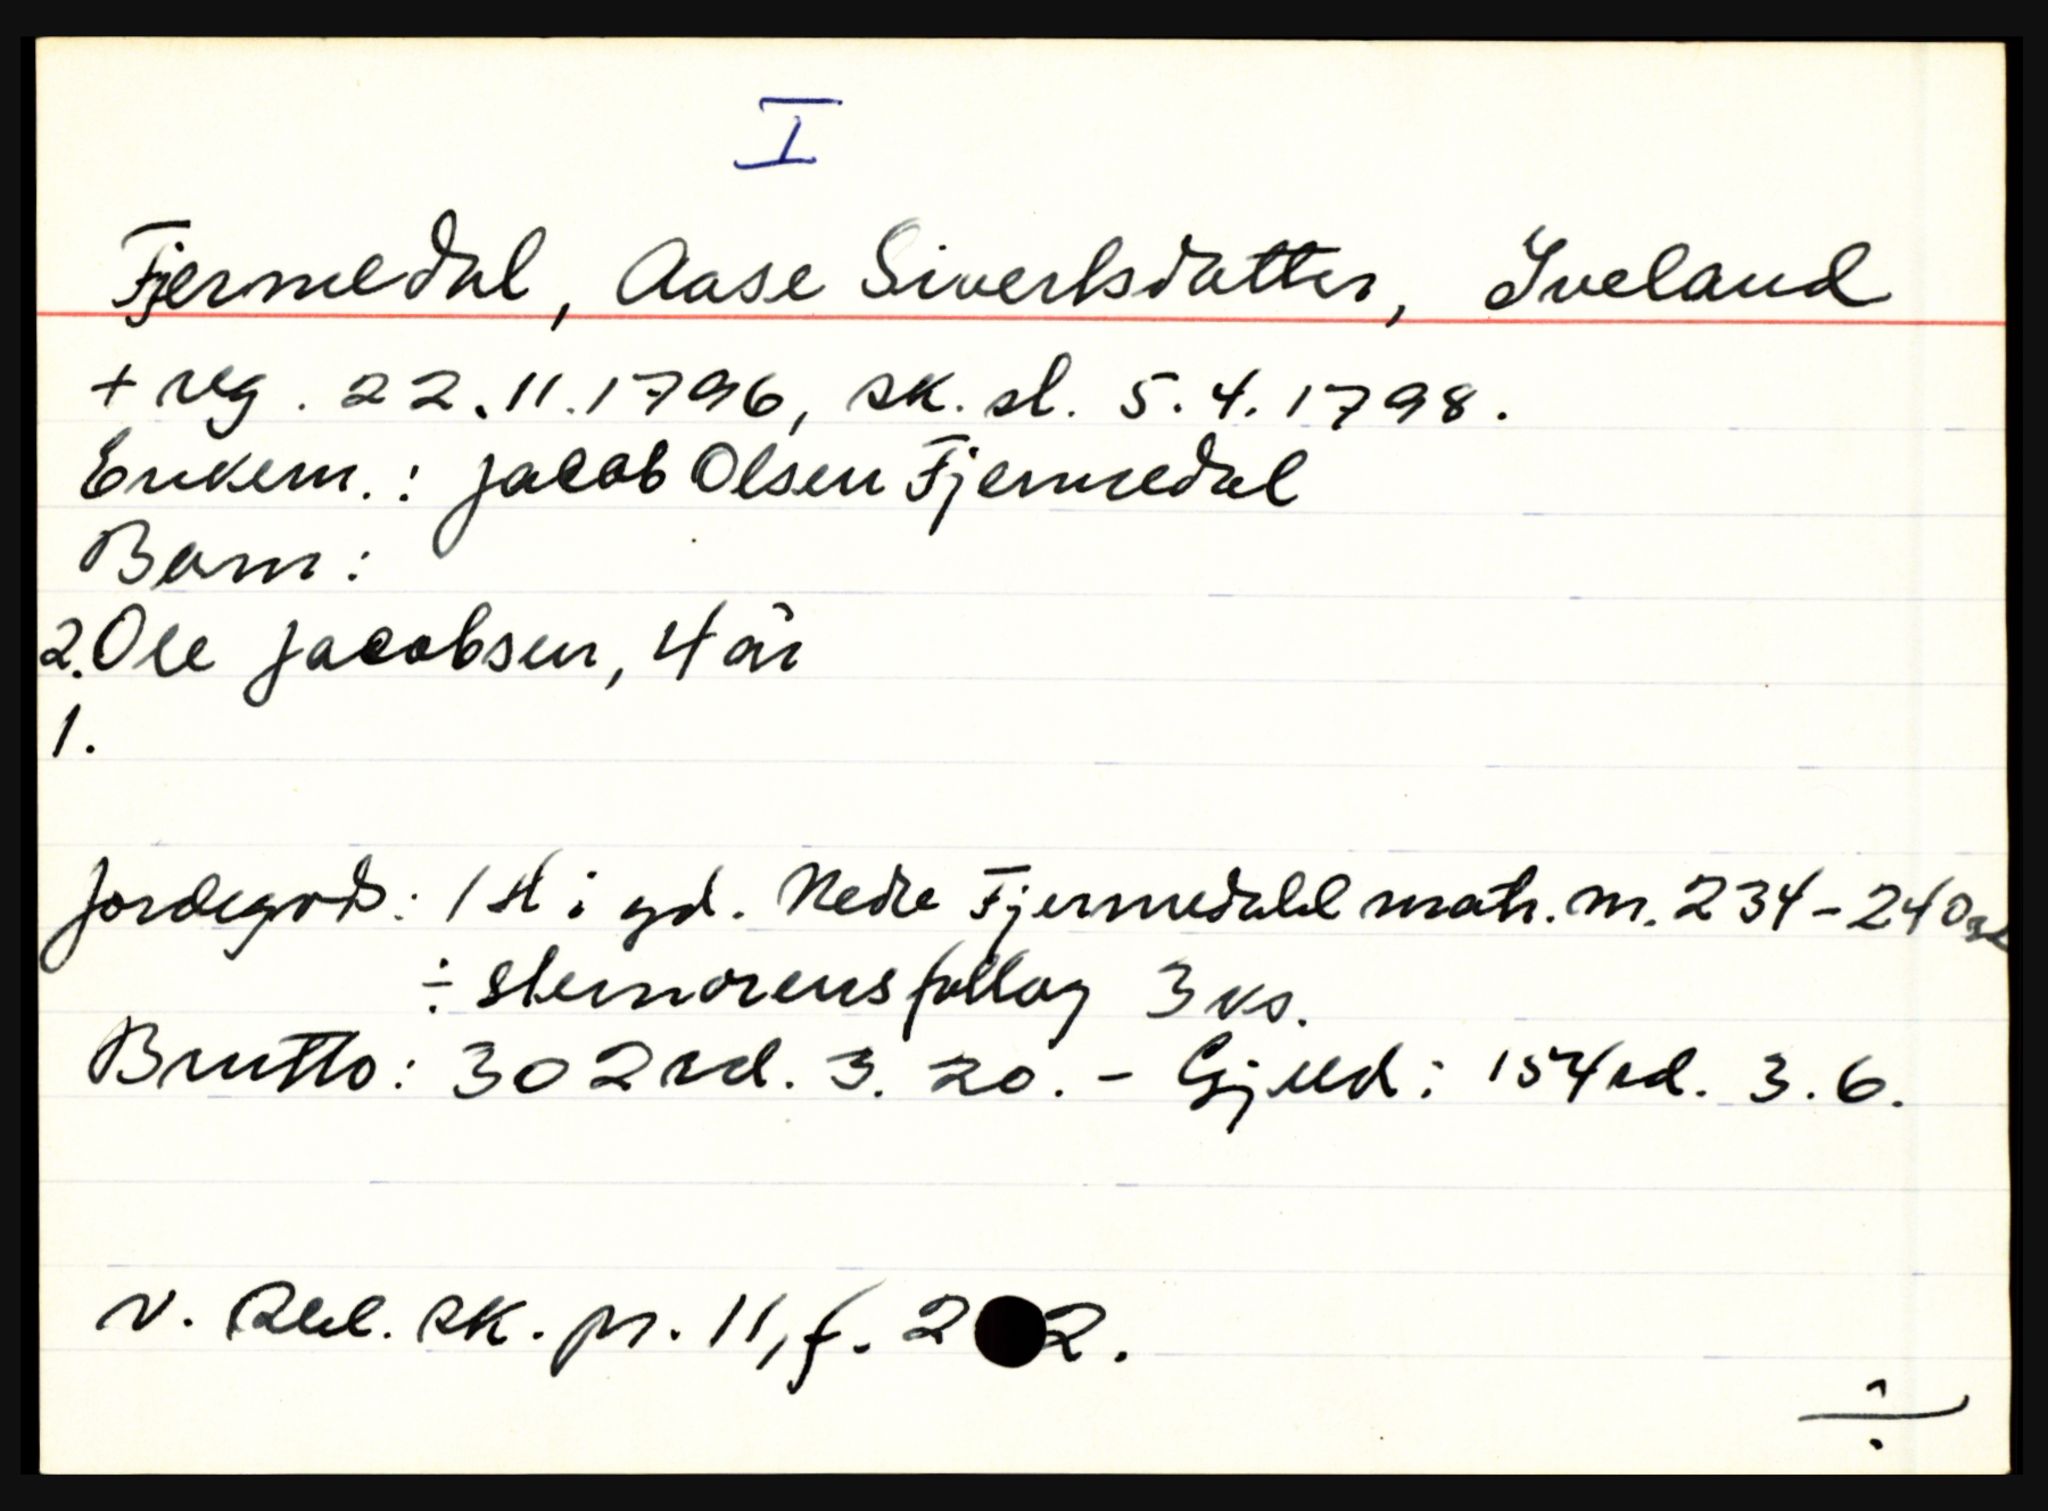 I
Fjermedal, Aase Sivertsdatter, Iveland
+ reg. 22.11.1796, sk. sl. 5.4.1798.
Enkem.: Jacob Olsen Fjermedal
Barn:
2. Ole Jacobsen, 4 år
1.
Jordegods: 1 i gd. Nedre Fjermedahl matr. nr. 234 - 240
÷ 3 ks.
Brutto: 302 rd. 3. 20. - Gjeld: 154 rd. 3. 6.
v. Rbl. sk. pr. 11, f. 2 2.
÷